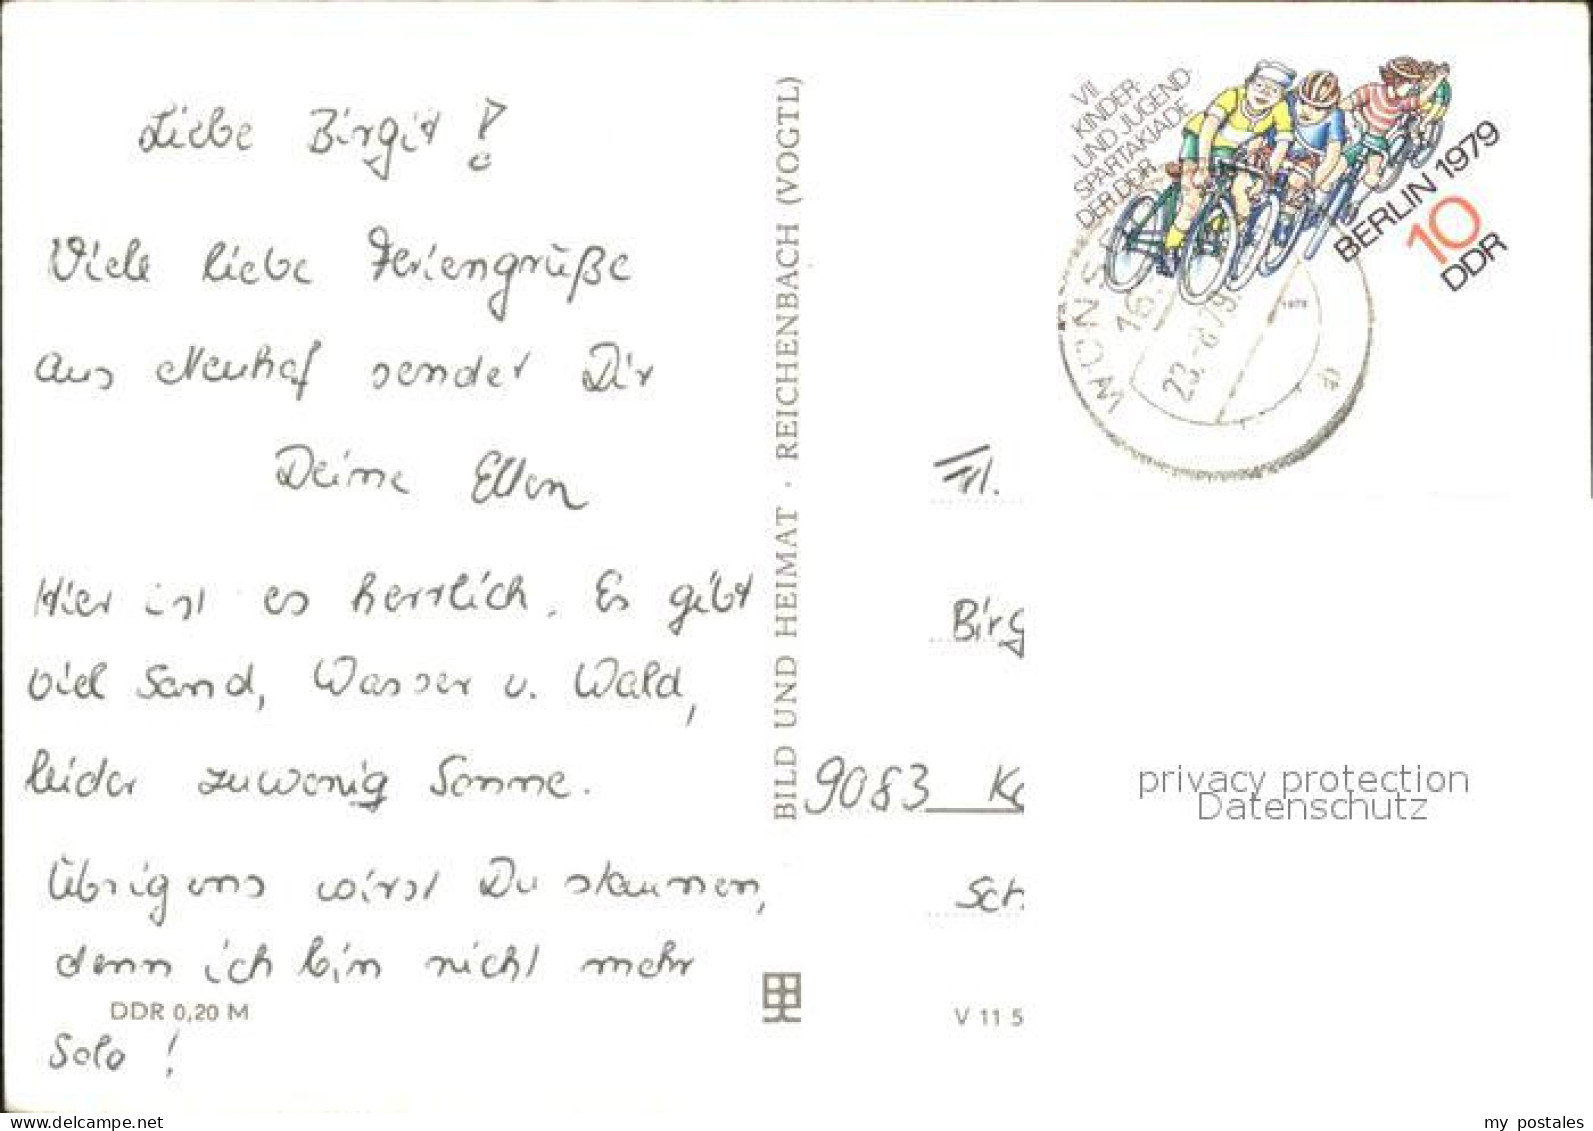 Liebe Birgit!
Viele liebe Feriengrüße
aus Neuhof sendet Dir
Deine Ellen
Hier ist es herrlich. Es gibt
viel Sand, Wasser u. Wald,
leider zuwenig Sonne.
Übrigens wirst Du staunen,
denn ich bin nicht mehr
Solo!
DDR 0,20 M
BILD UND HEIMAT · REICHENBACH (VOGTL)
VII.
KINDER-
UND JUGEND-
SPARTAKIADE
DER DDR
BERLIN 1979
10
DDR
1979
23.-8.79
Frl.
Birg
9083 K
Sch
V 11 5
privacy protection
Datenschutz
my postales